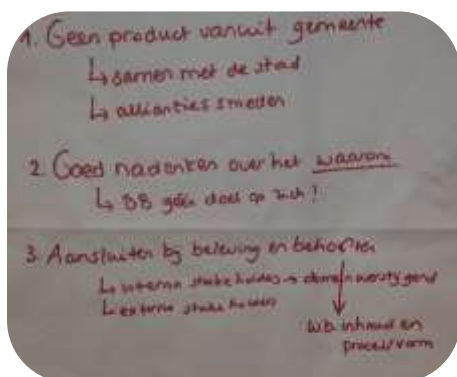 1. Geen product vanuit gemeente
↳ samen met de stad
↳ allianties smeden
2. Goed nadenken over het waarom
↳ DB géén doel op zich!
3. Aansluiten bij beleving en behoeften
↳ interne stakeholders → domeinoverstijgend
↳ externe stakeholders
wb. inhoud en
proces/vorm